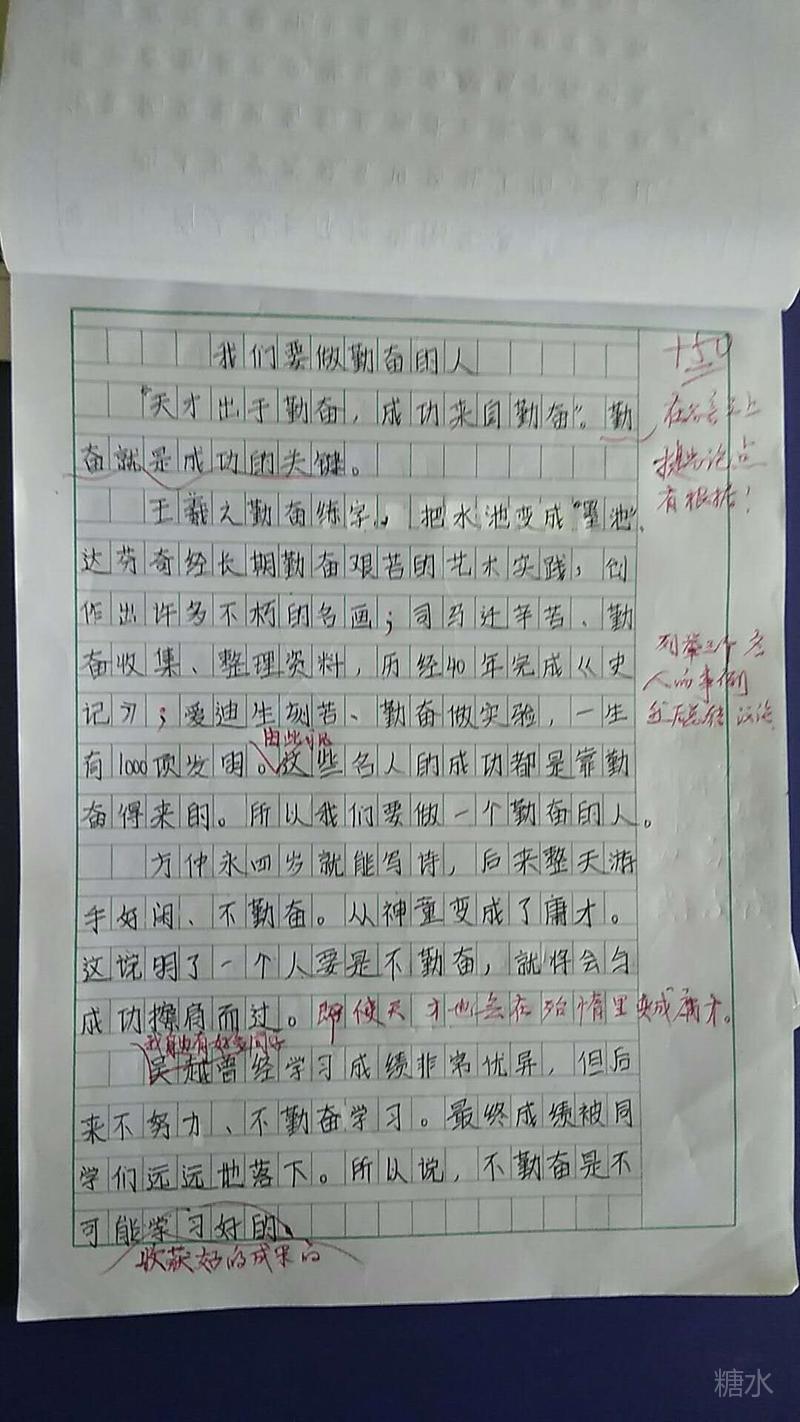 我们要做勤奋的人
"天才出于勤奋，成功来自勤奋"。勤
奋就是成功的关键。
王羲之勤奋练字，把水池变成"墨池"、
达芬奇经长期勤奋艰苦的艺术实践，创
作出许多不朽的名画；司马迁辛苦、勤
奋收集、整理资料，历经40年完成《史
记》；爱迪生刻苦、勤奋做实验，一生
由此可见
有1000项发明。这些名人的成功都是靠勤
奋得来的。所以我们要做一个勤奋的人。
方仲永四岁就能写诗，后来整天游
手好闲、不勤奋。从神童变成了庸才。
这说明了一个人要是不勤奋，就将会与
成功擦肩而过。即使天才也会在殆惰里变成庸才。
吴越曾经学习成绩非常优异，但后
来不努力、不勤奋学习。最终成绩被同
学们远远地落下。所以说，不勤奋是不
可能学习好的、
收获好的成果的
提出论点
有根据！
人的事例
糖水